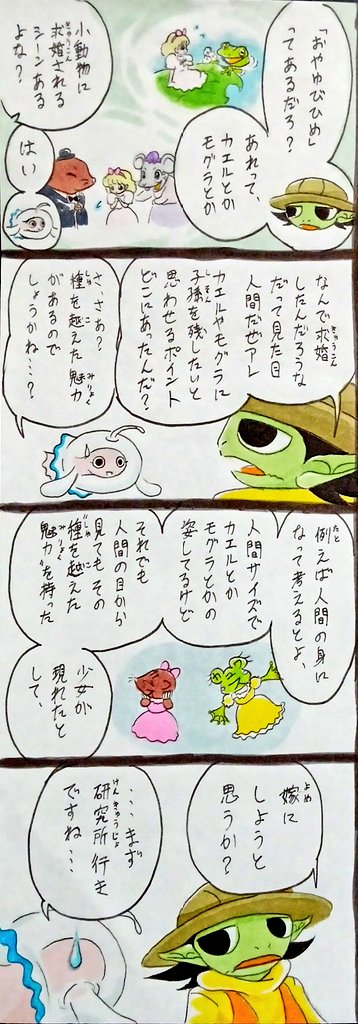 「おやゆびひめ」
ってあるだろ？
あれって、
カエルとか
モグラとか
小動物に
求婚される
シーンある
よな？
はい
なんで求婚
したんだろうな
だって見た目
人間だぜアレ
カエルやモグラに
子孫を残したいと
思わせるポイント
どこにあったんだ？
さ、さあ？
種を越えた魅力
があるので
しょうかね…？
例えば人間の身に
なって考えるとよ、
人間サイズで
カエルとか
モグラとかの
姿してるけど
それでも
人間の目から
見てもその
種を越えた
魅力を持った
少女が
現れたと
して、
嫁に
しようと
思うか？
…まず
研究所行き
ですね…